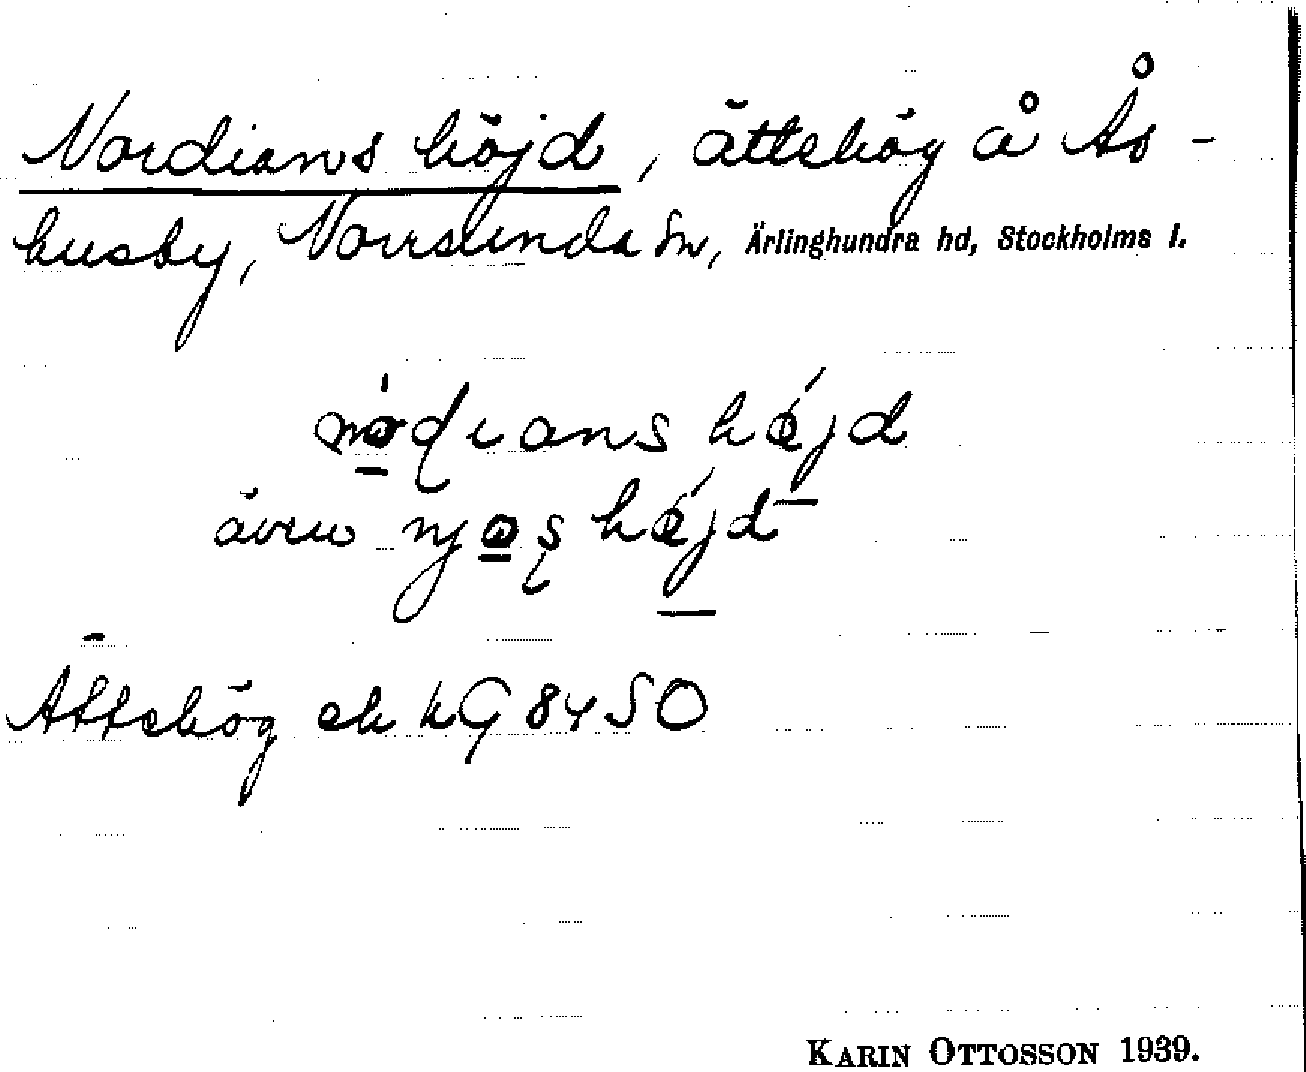 Nordians höjd, ättehög å Ås-
husby, Norrsunda sn, Ärlinghundra hd, Stockholms l.
höjd
även höjd
Ättehög ek kG 84 SO
KARIN OTTOSSON 1939.